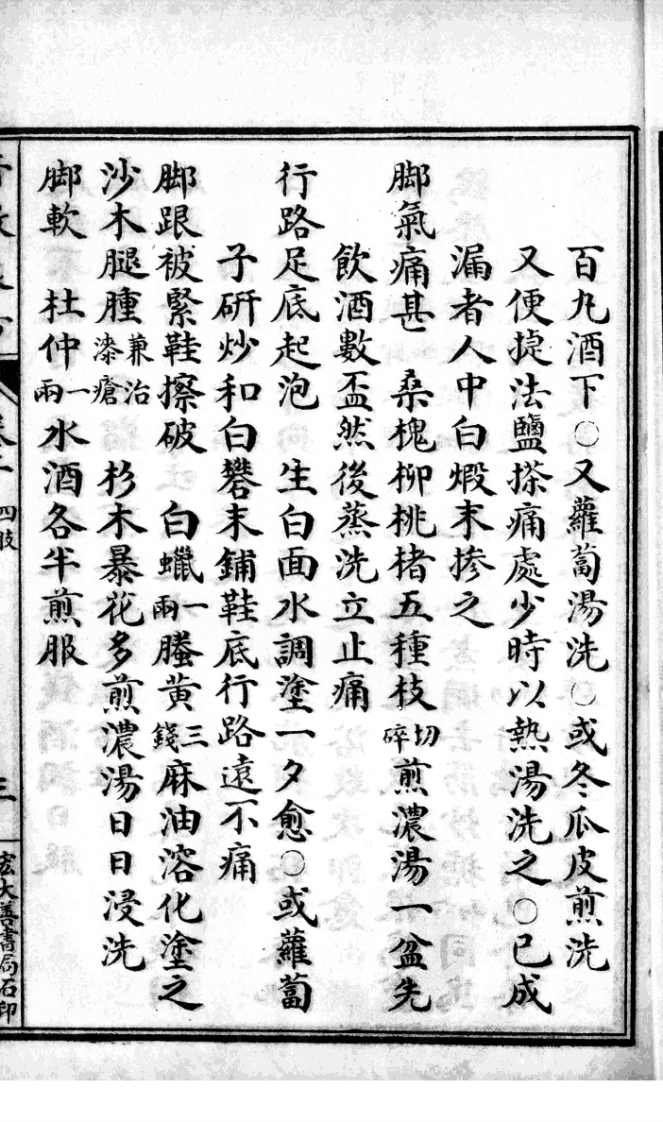 百九酒下○又蘿蔔湯洗○或冬瓜皮煎洗
又便㨗法鹽搽痛處少時以熱湯洗之○已成
漏者人中白煅末摻之
脚氣痛甚 桑槐柳桃楮五種枝切碎煎濃湯一盆先
飲酒數盃然後蒸洗立止痛
行路足底起泡 生白面水調塗一夕愈○或蘿蔔
子研炒和白礬末鋪鞋底行路遠不痛
脚跟被緊鞋擦破 白蠟一兩螣黄三錢麻油溶化塗之
沙木腿腫兼治漆瘡 杉木暴花多煎濃湯日日浸洗
脚軟 杜仲一兩水酒各半煎服
四肢
三
宏大善書局石印